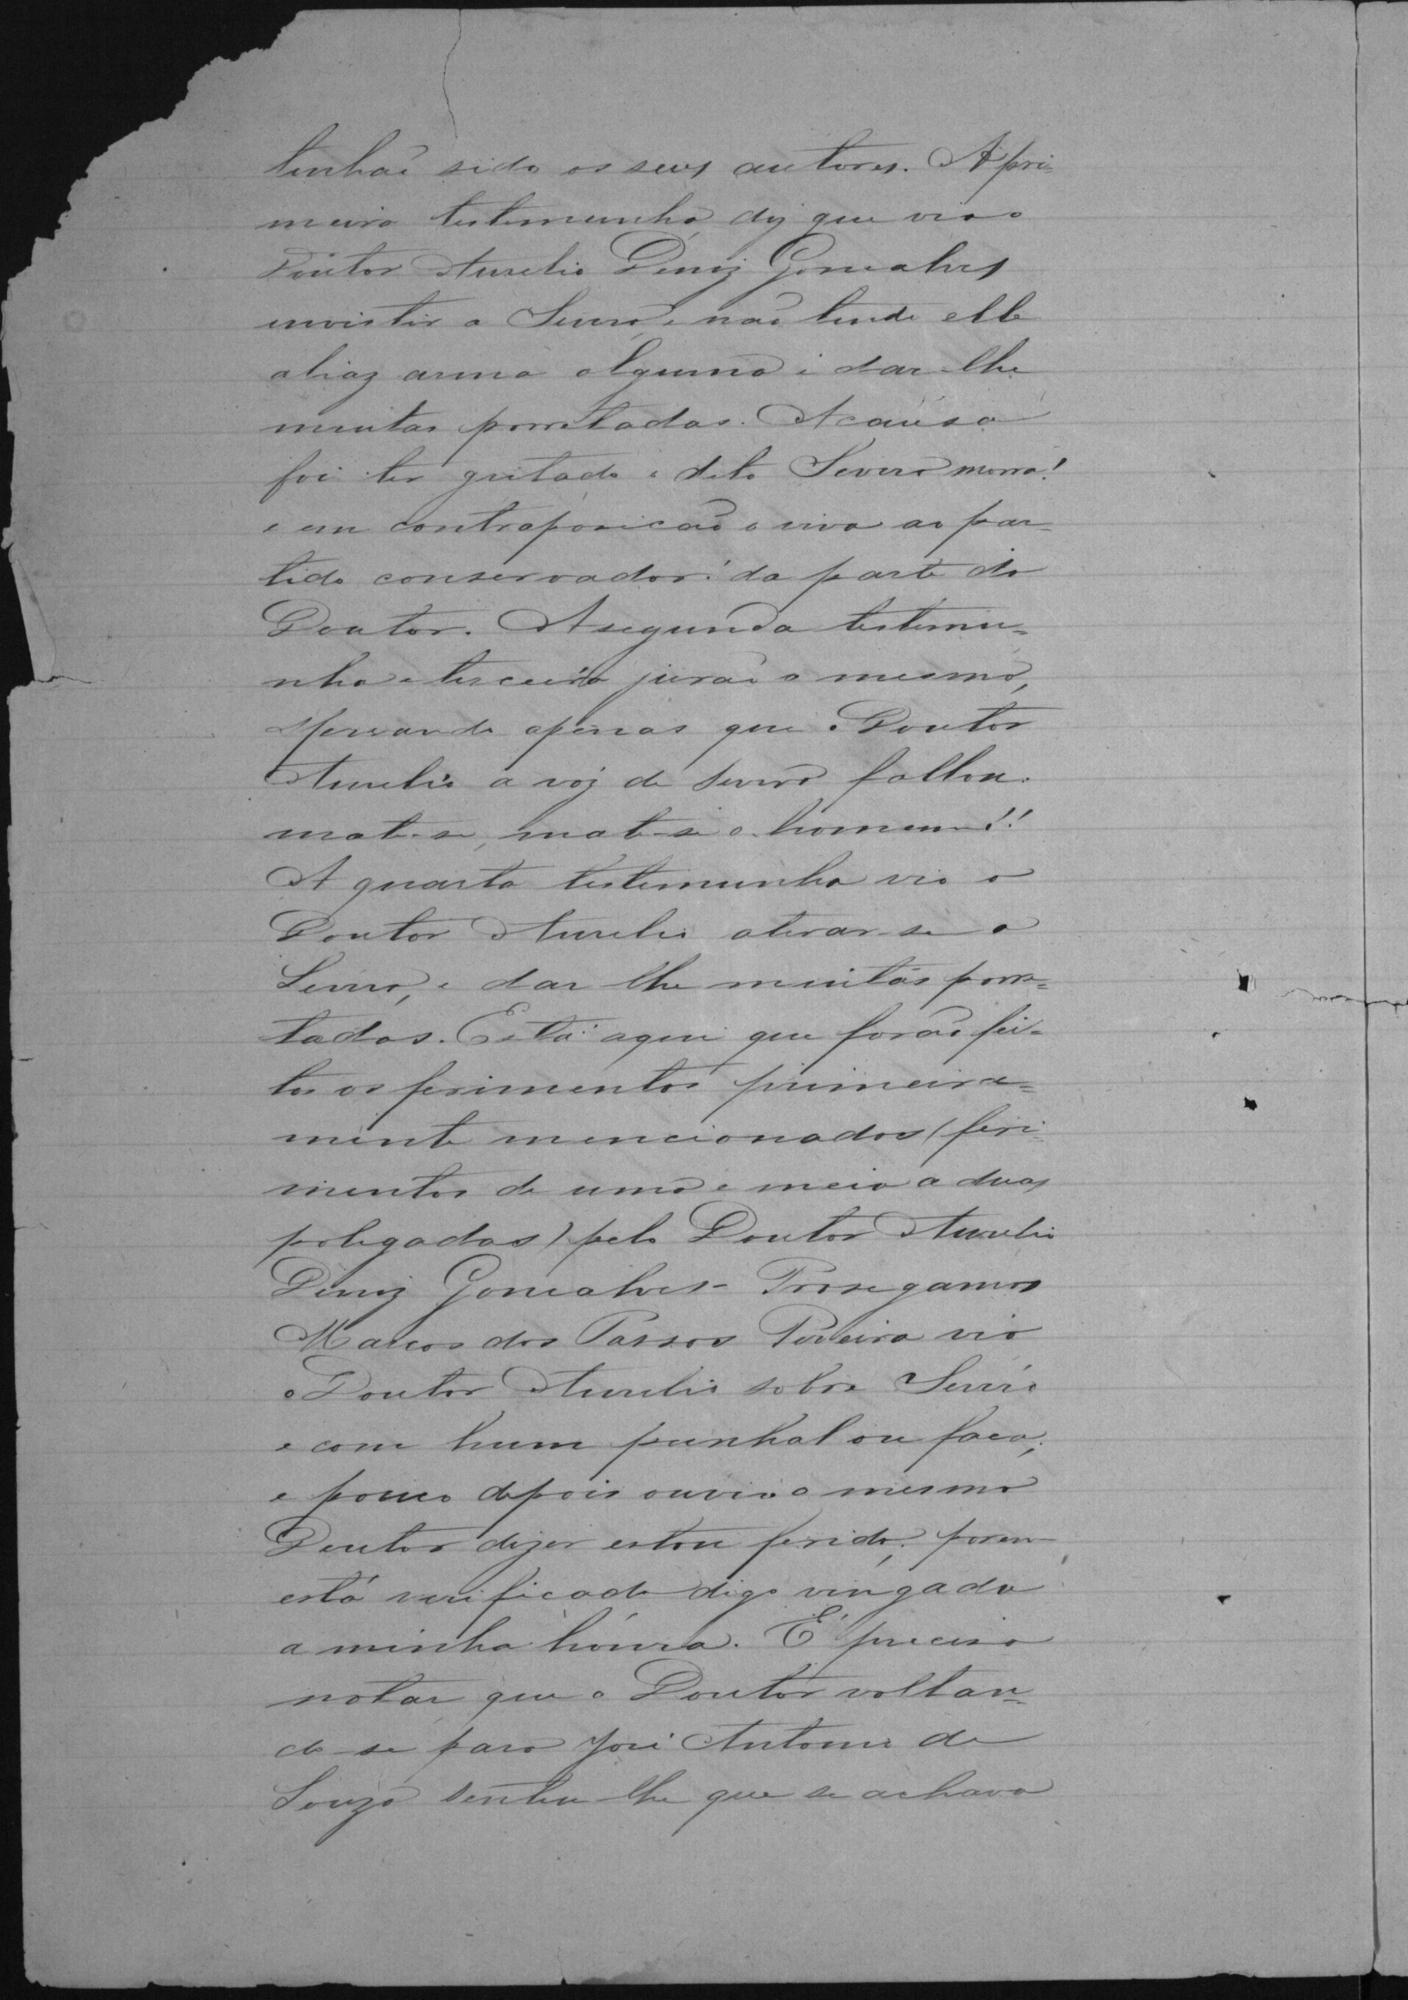 tenhão sido os seus autores. A pri-
meira testemunha diz que vio o
Doutor Aurelio Deniz Goncalves
investir a Severo, não tendo elle
aliaz arma alguma e dar-lhe
muitas porretadas. A causa
foi ter gritado o dito Severo morra!
e em contraposicão o viva ao par-
tido conservador! da parte do
Doutor. A segunda testemu-
nha e terceira jurão o mesmo,
apenas que o Doutor
Aurelio a voz de Severo fallou.
mate-se, mate-se o homem!!
A quarta testemunha vio o
Doutor Aurelio atirar-se a
Severo, e dar lhe muitas porre-
tadas. Está aqui que forão fei-
tos os ferimentos primeira-
mente mencionados (feri-
mentos de uma e meia a duas
polegadas) pelo Doutor Aurelio
Deniz Goncalves - Prosegamos
Marcos dos Passos Pereira vio
o Doutor Aurelio sobre Severo
e com hum punhal ou faca,
e pouco depois ouvio o mesmo
Doutor dizer estou ferido, porem
está verificada digo vingada
a minha honra. É preciso
notar que o Doutor voltan-
do-se para José Antonio de
Souza lhe que se achava